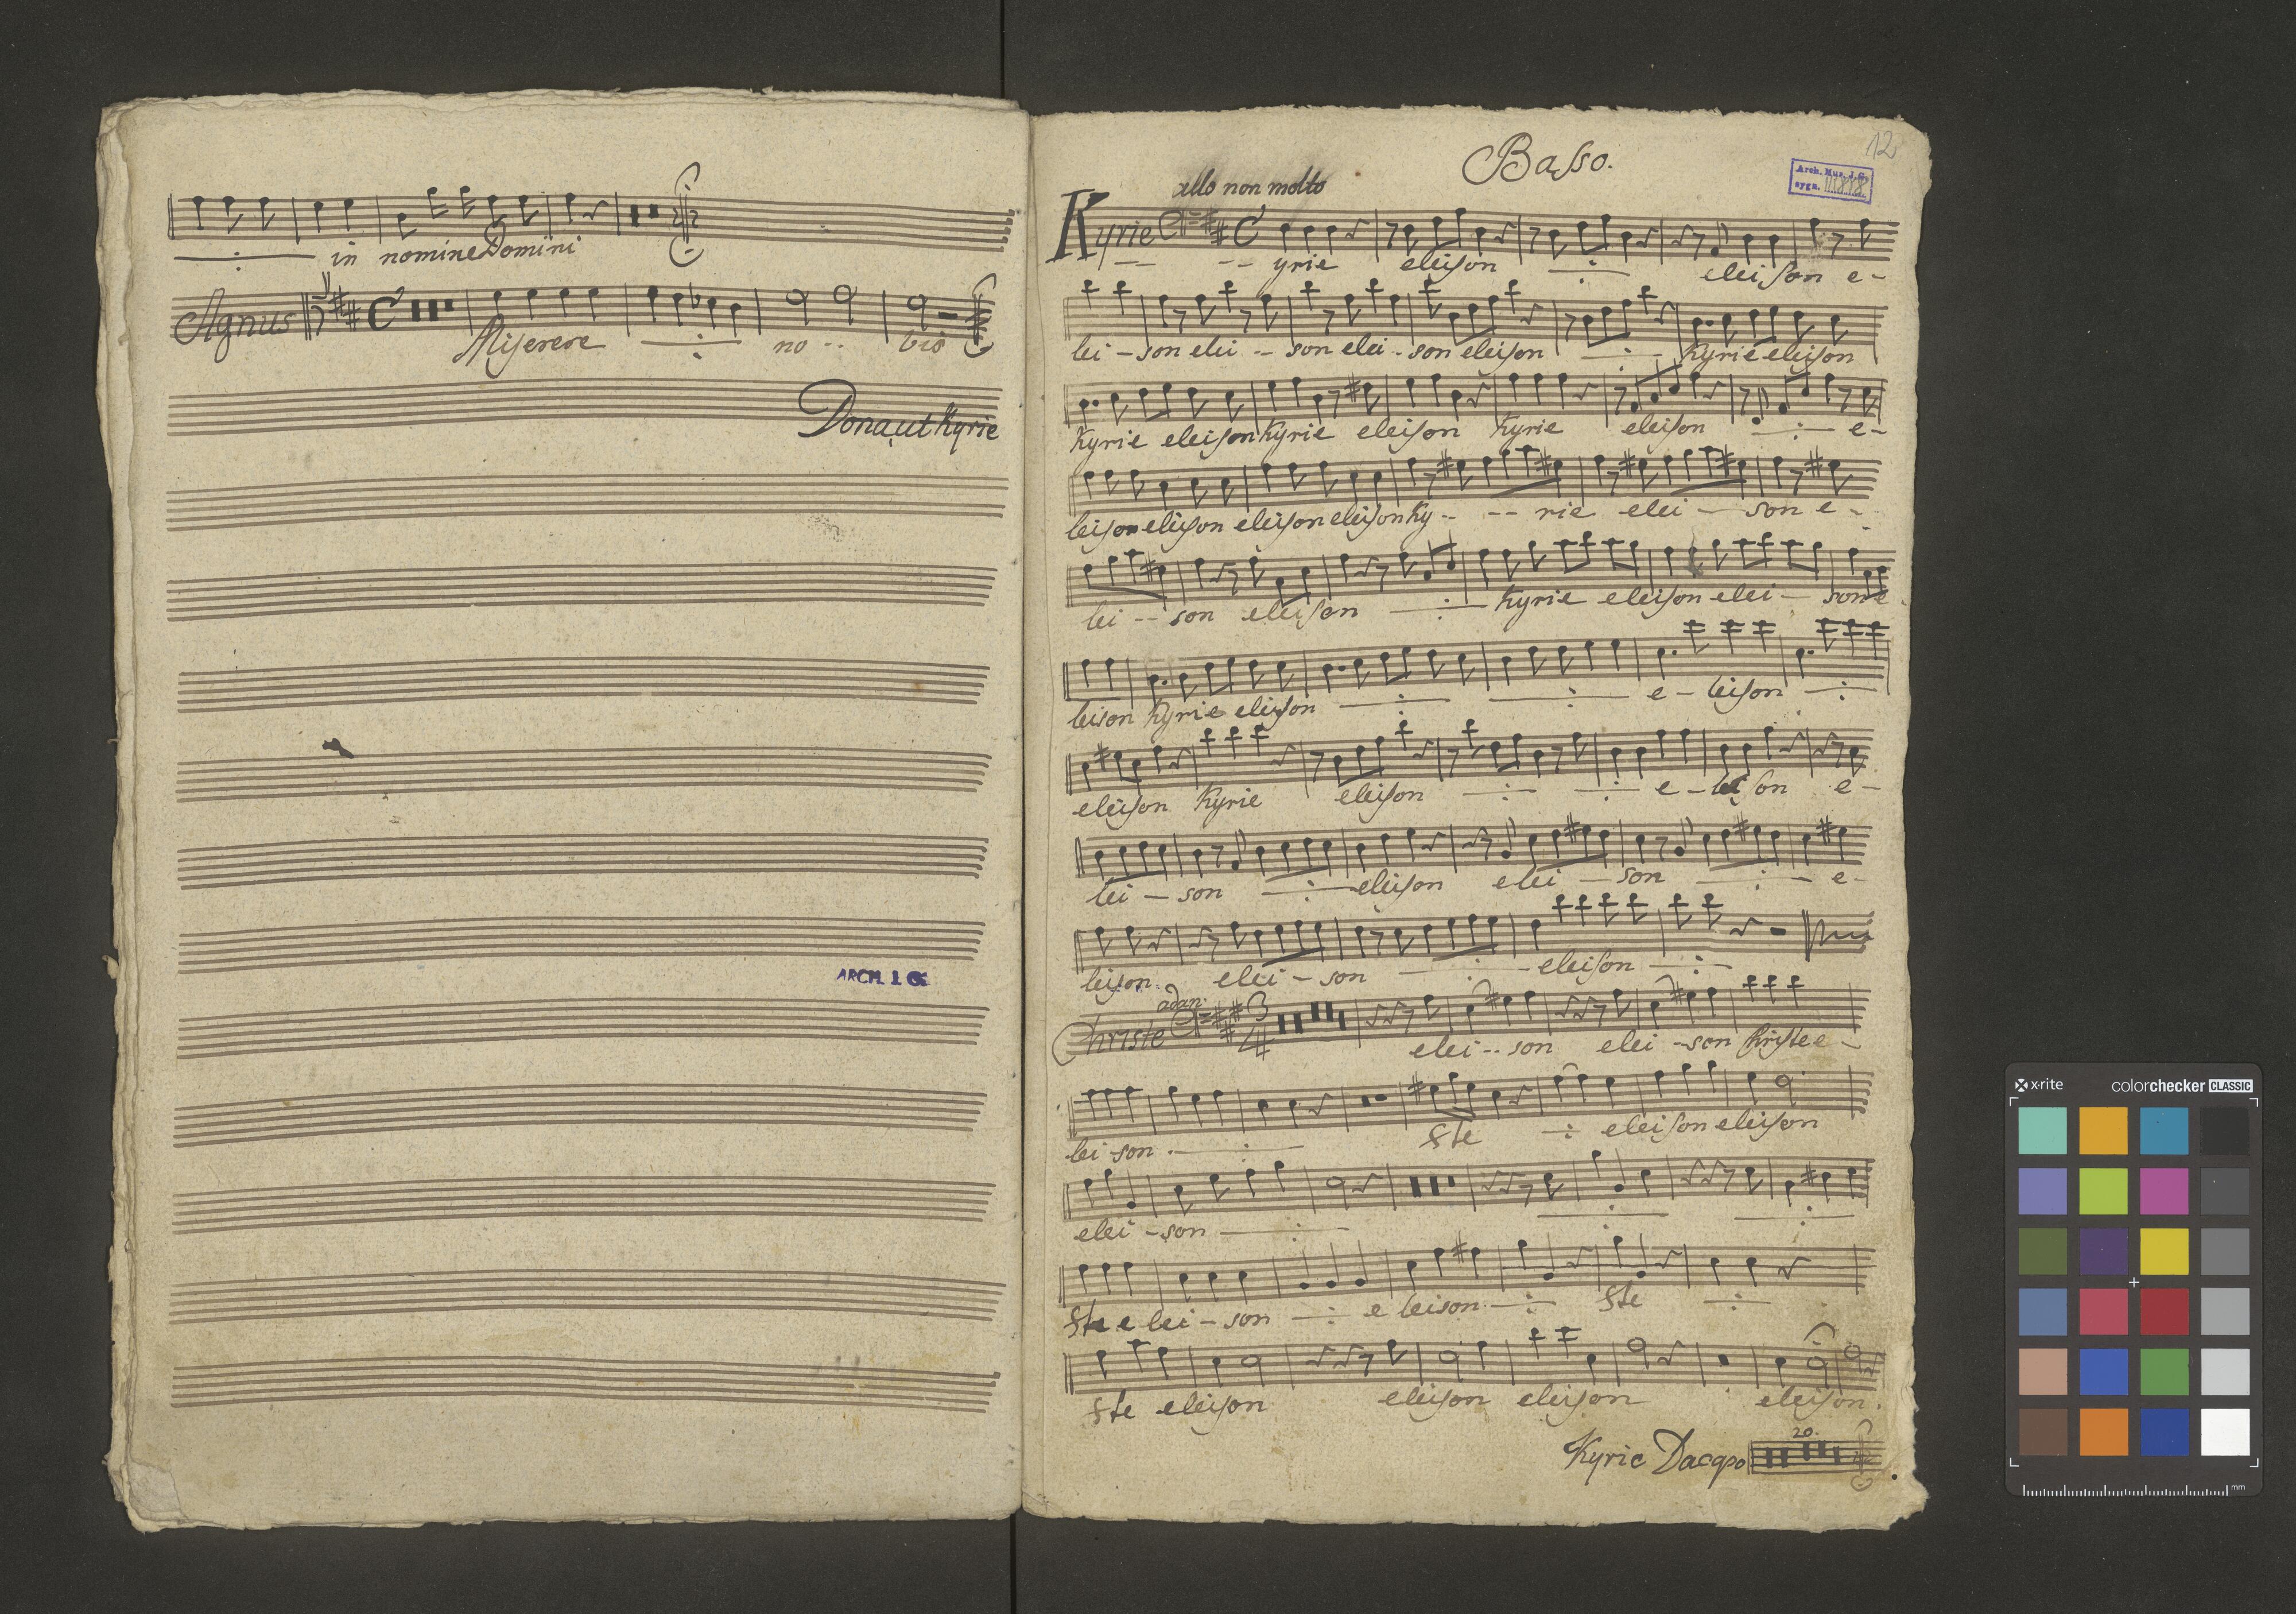 in nomine Domini
Agnus
Miserere no - - bis
Dona ut Kyrie
ARCH. I G
12
Basso.
Arch. Mus. J. G.
sygn.
allo non molto
Kyrie
C
yrie eleison eleison e-
lei - son elei - - son elei - son eleison Kyrie eleison
Kyrie eleison Kyrie eleison Kyrie eleison e-
leison eleison eleison eleison Ky - - - - rie elei - son e -
lei - - son eleison Kyrie eleison elei - son e
leison Kyrie eleison e - leison
eleison Kyrie eleison e - leison e -
lei - son eleison elei - son e -
leison. elei - son - eleison
adan:
Christe
3
4
elei - - son elei - son Christe e -
lei - son ste eleison eleison
elei - son
ste e lei - son e leison ste
ste eleison eleison eleison eleison.
20.
Kyrie Dacapo
x-rite
colorchecker CLASSIC
mm